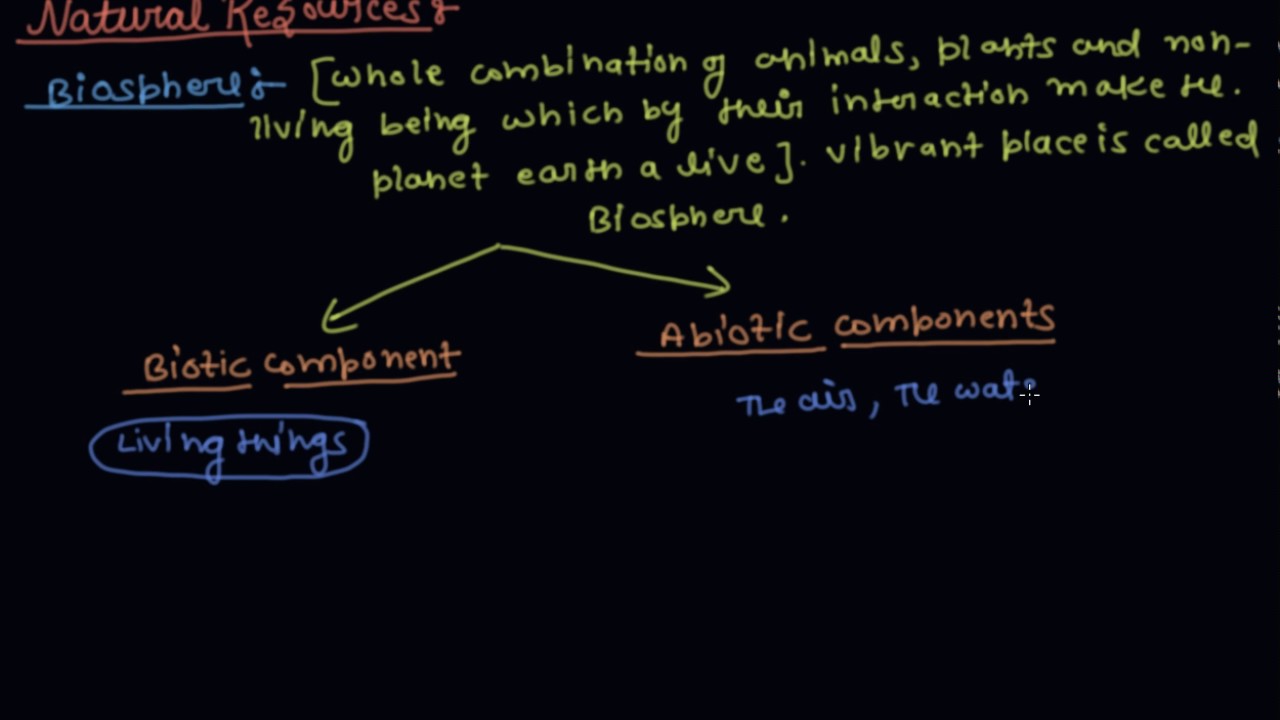 Natural Resources:
Biosphere:- [whole combination of animals, plants and non-
living being which by their interaction make the.
planet earth a live]. vibrant place is called
Biosphere.
Biotic component
Abiotic components
Living things
The air, The wate